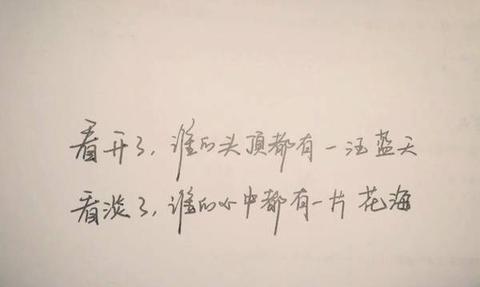 看开了，谁的头顶都有一汪蓝天
看淡了，谁的心中都有一片花海